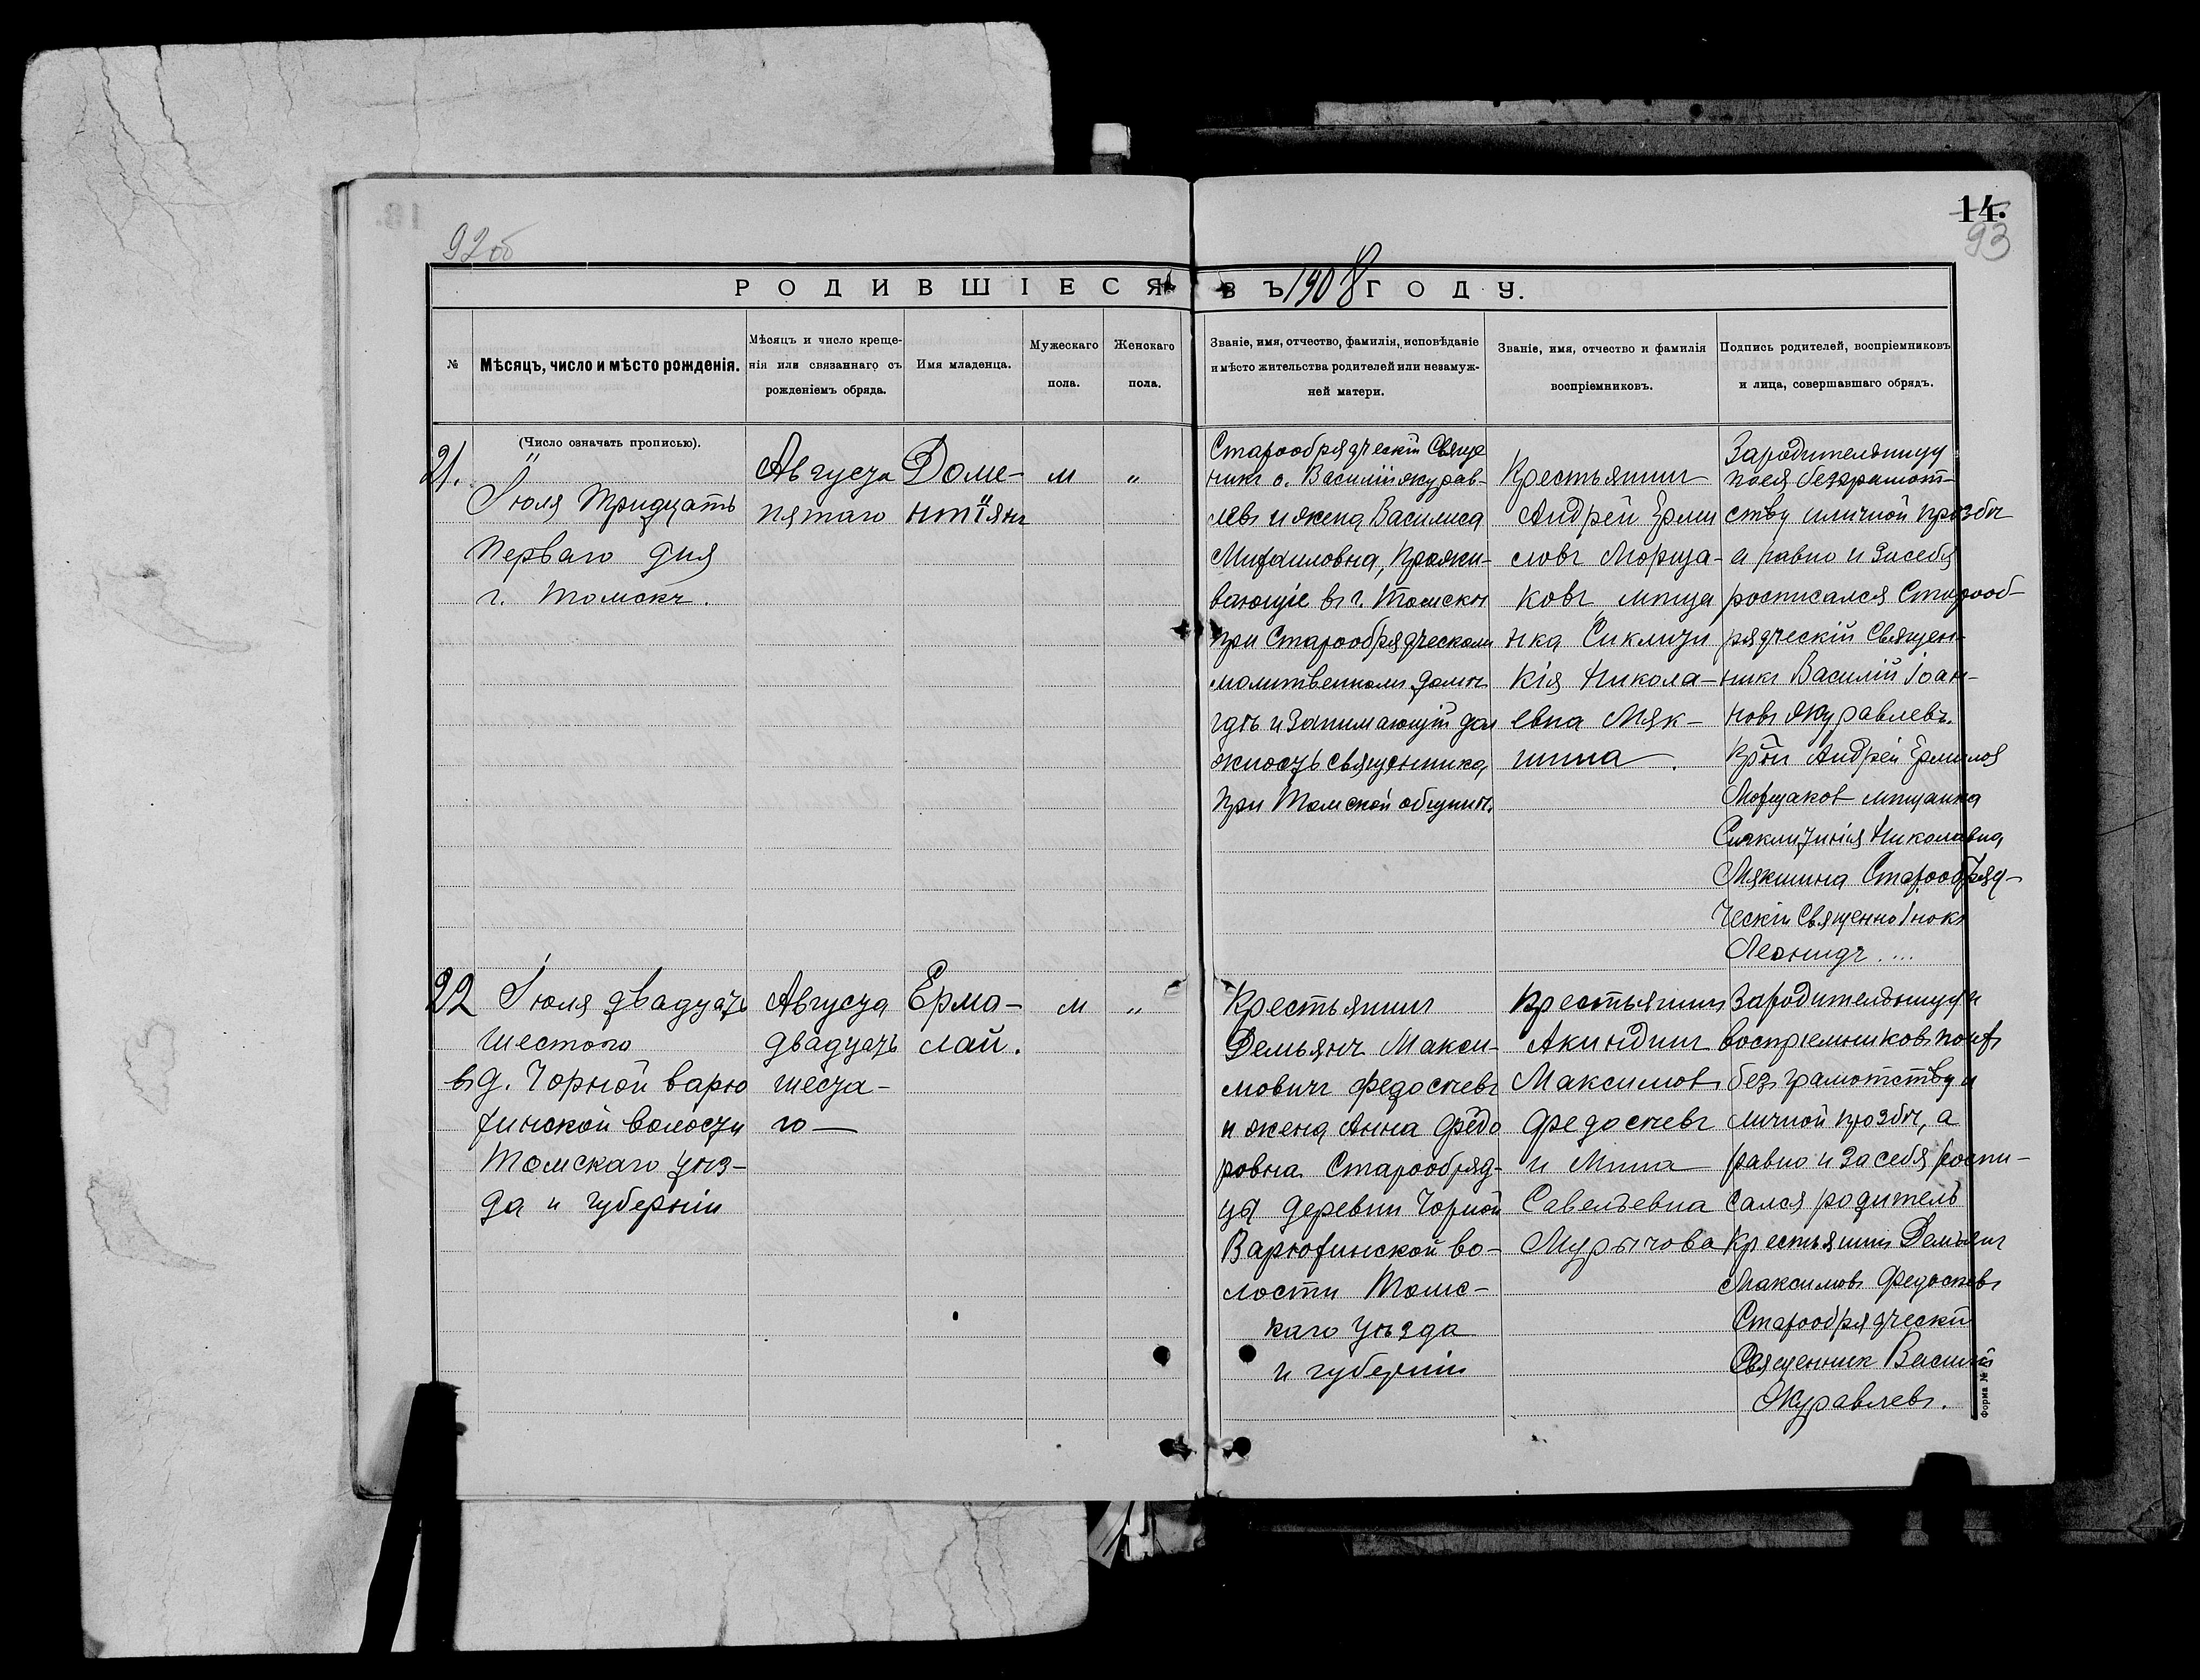 14.
92об
93
РОДИВШІЕСЯ ВЪ 1908 ГОДУ.
№
Мѣсяцъ, число и мѣсто рожденія.
Мѣсяцъ и число креще-
нія или связаннаго съ
рожденіемъ обряда.
Имя младенца.
Мужескаго
пола.
Женскаго
пола.
Званіе, имя, отчество, фамилія, исповѣданіе
и мѣсто жительства родителей или незамуж-
ней матери.
Званіе, имя, отчество и фамилія
воспріемниковъ.
Подпись родителей, воспріемниковъ
и лица, совершавшаго обрядъ.
(Число означать прописью).
21.
Іюля Тридцать
перваго дня
г. Томскъ.
Августа
пятаго
Доме-
нтіянъ
м
"
Старообрядческій Свяще
никъ о. Василій журав-
левъ и жена Василиса
Михаиловна, Прожи-
вающіе въ г. Томскѣ
при Старообрядческомъ
молитвенномъ домѣ
гдѣ и Занимающій дол
жность священника,
при Томской общинѣ.
Крестьянинъ
Андрей Ерми
ловъ Морща-
ковъ мѣща
нка Сиклити
кія Никола-
евна Мяк-
шина.
Зародительницу
поея безграмот-
ству иличной прозбѣ
а равно и засебя
росписался Старооб-
рядческій Священ-
никъ Василій Іоан-
новъ Журавлевъ.
Крѣн Андрей Ермилов
Морщаков мѣщанка
Николавна
Мякшина Старообряд-
ческій СвященноІнокъ
Леонидъ....
22
Іюля двадцать
шестого
въ д. Чорной варю
хинской волости
Томскаго уѣз-
да и губерніи
Августа
двадцать
шеста-
го —
Ермо-
лай.
м
"
Крестьянинъ
Демьянъ Макси-
мовичъ Федосѣевъ
и жена Анна Федо
ровна. Старообряд-
цы деревни Чорной
Варюхинской во-
лости Томс-
каго Уѣзда
и губерніи
Крестьянинъ
Акиндинъ
Максимовъ
Федосѣевъ
и
Савельевна
Мурычова
Зародительницу и
воспрiемниковъ поих
безграмотству и
личной прозбѣ, а
равно и засебя роспи-
сался родитель
Крестьянинъ Демьянъ
Максимовъ Федосѣевъ
Старообрядческій
Священник Василий
Журавлевъ.
Форма №